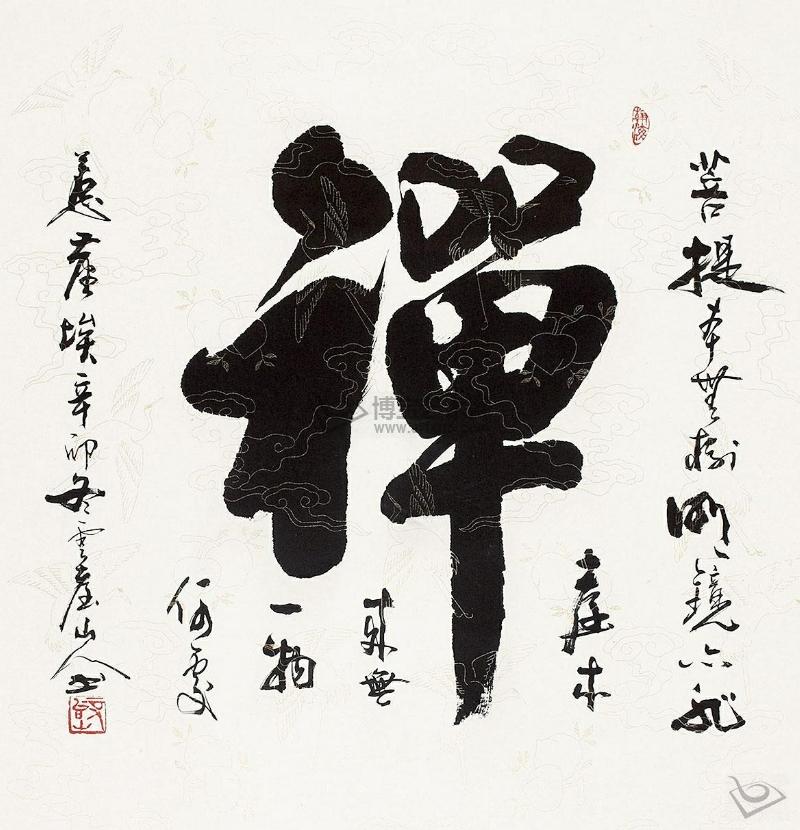 禪
菩提本無樹明鏡亦非
臺本
來無
一物
何處
惹塵埃辛卯冬雲崖山人書